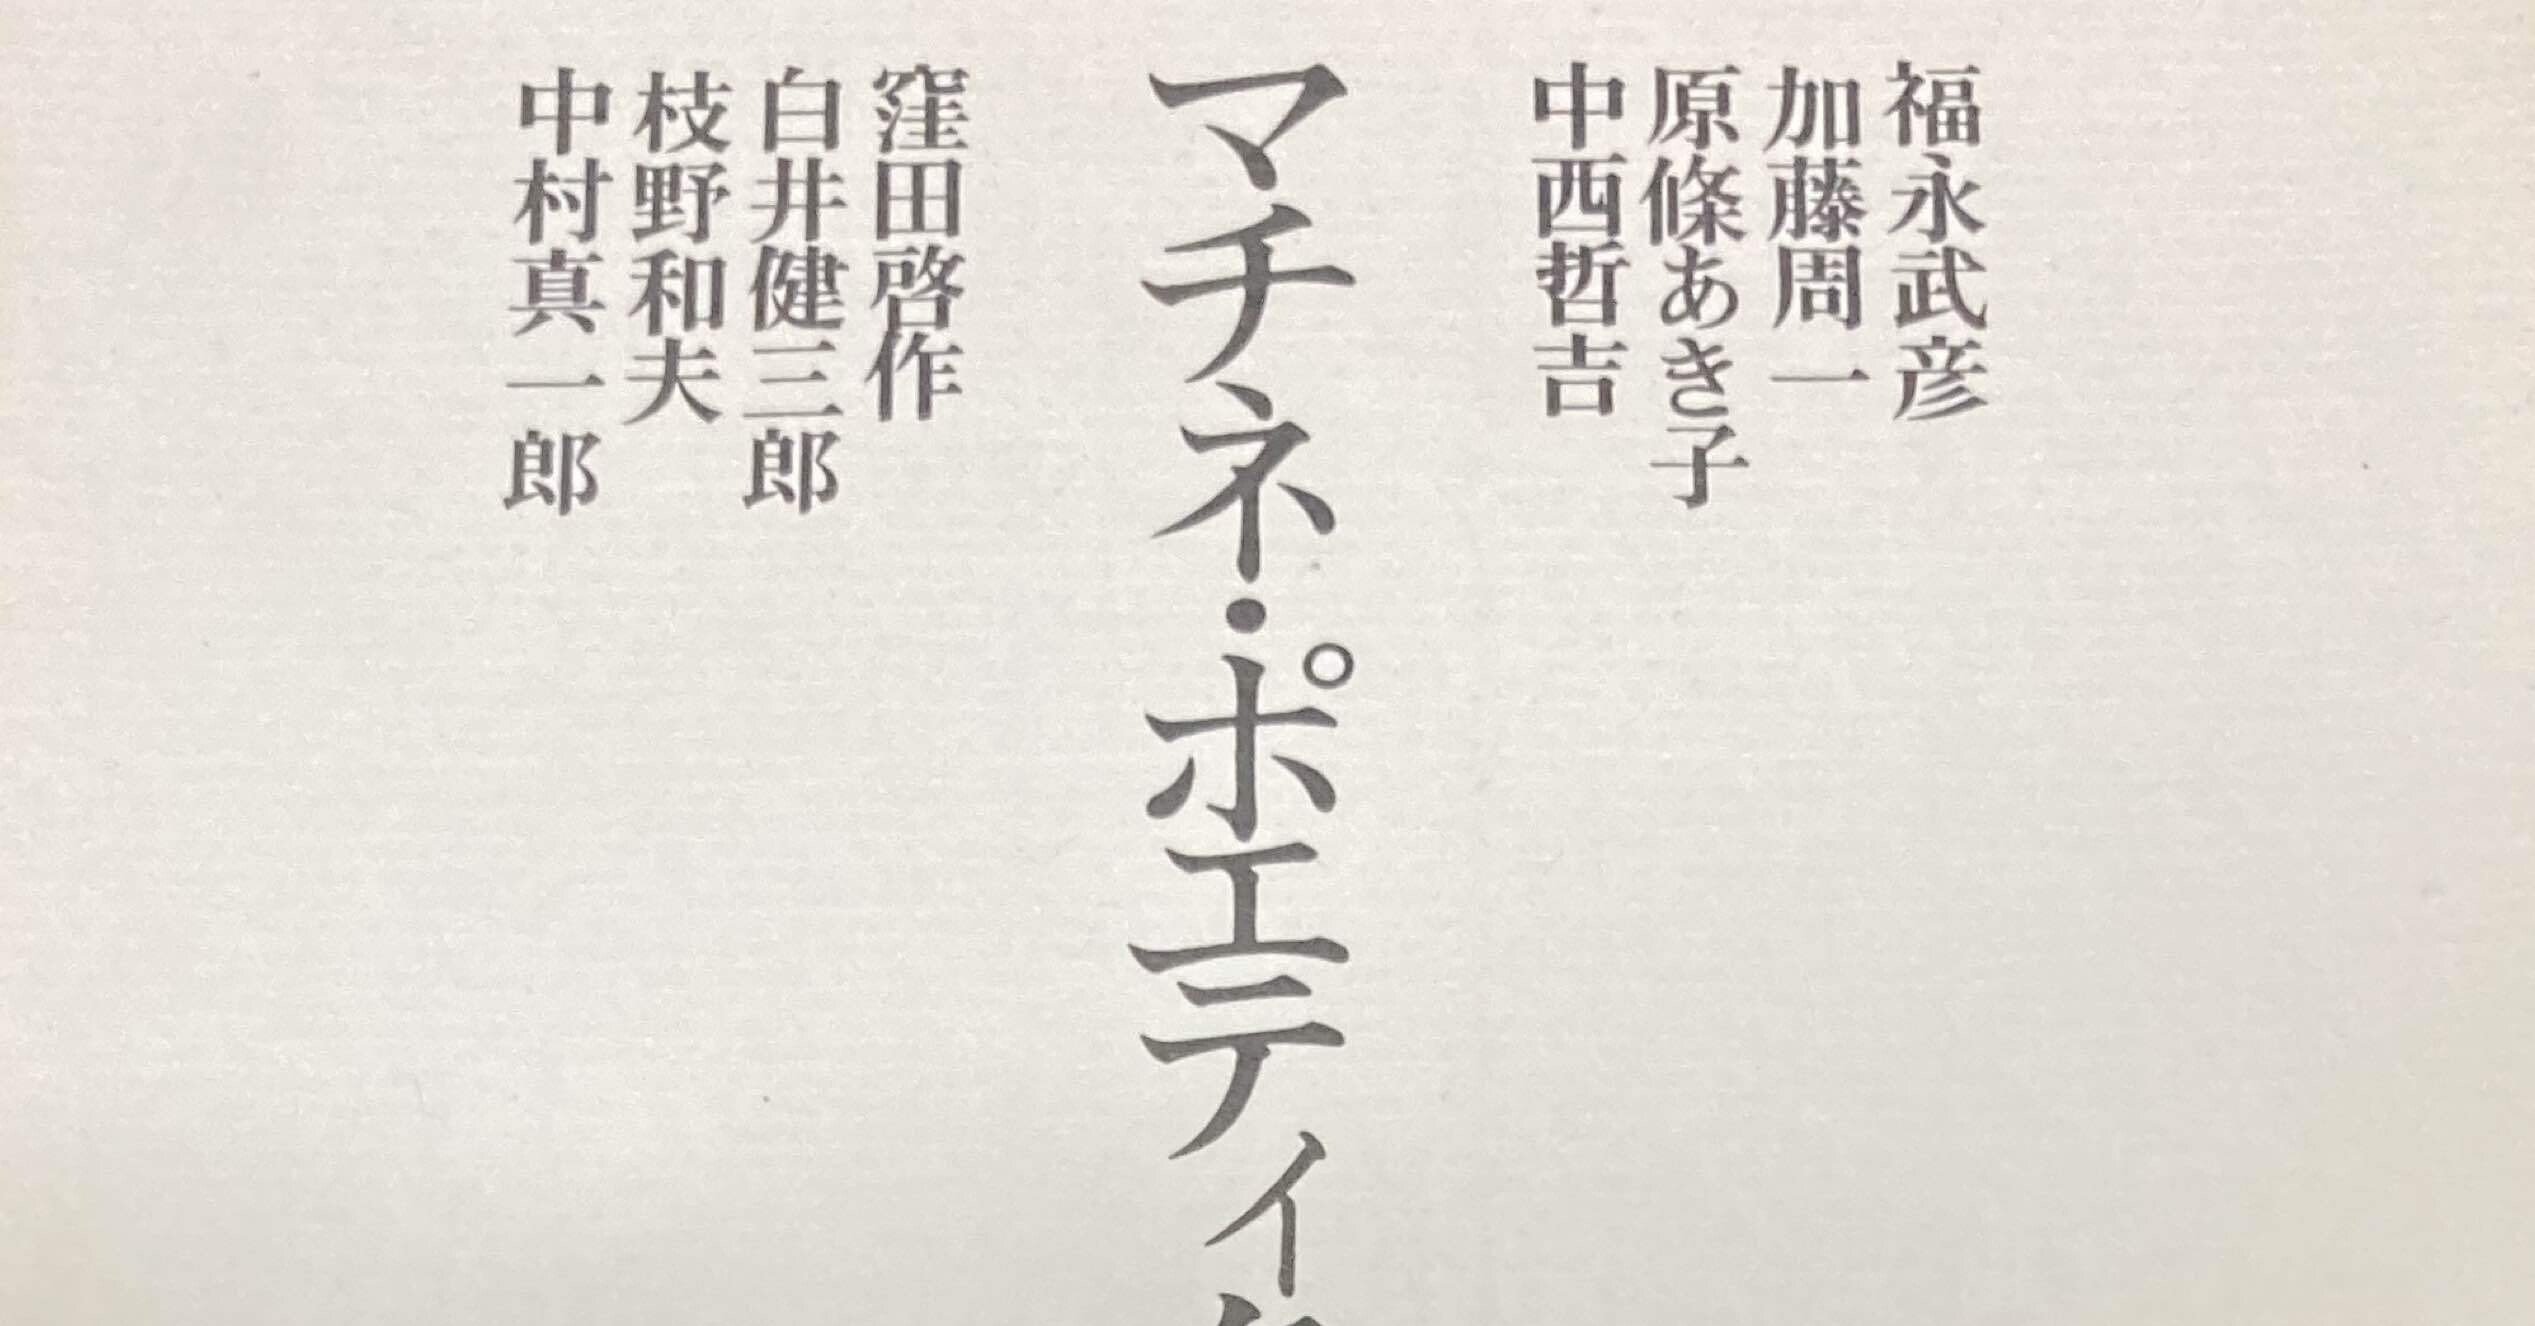 福永武彦
加藤周一
原條あき子
中西哲吉
マチネ・ポエティ
窪田啓作
白井健三郎
枝野和夫
中村真一郎